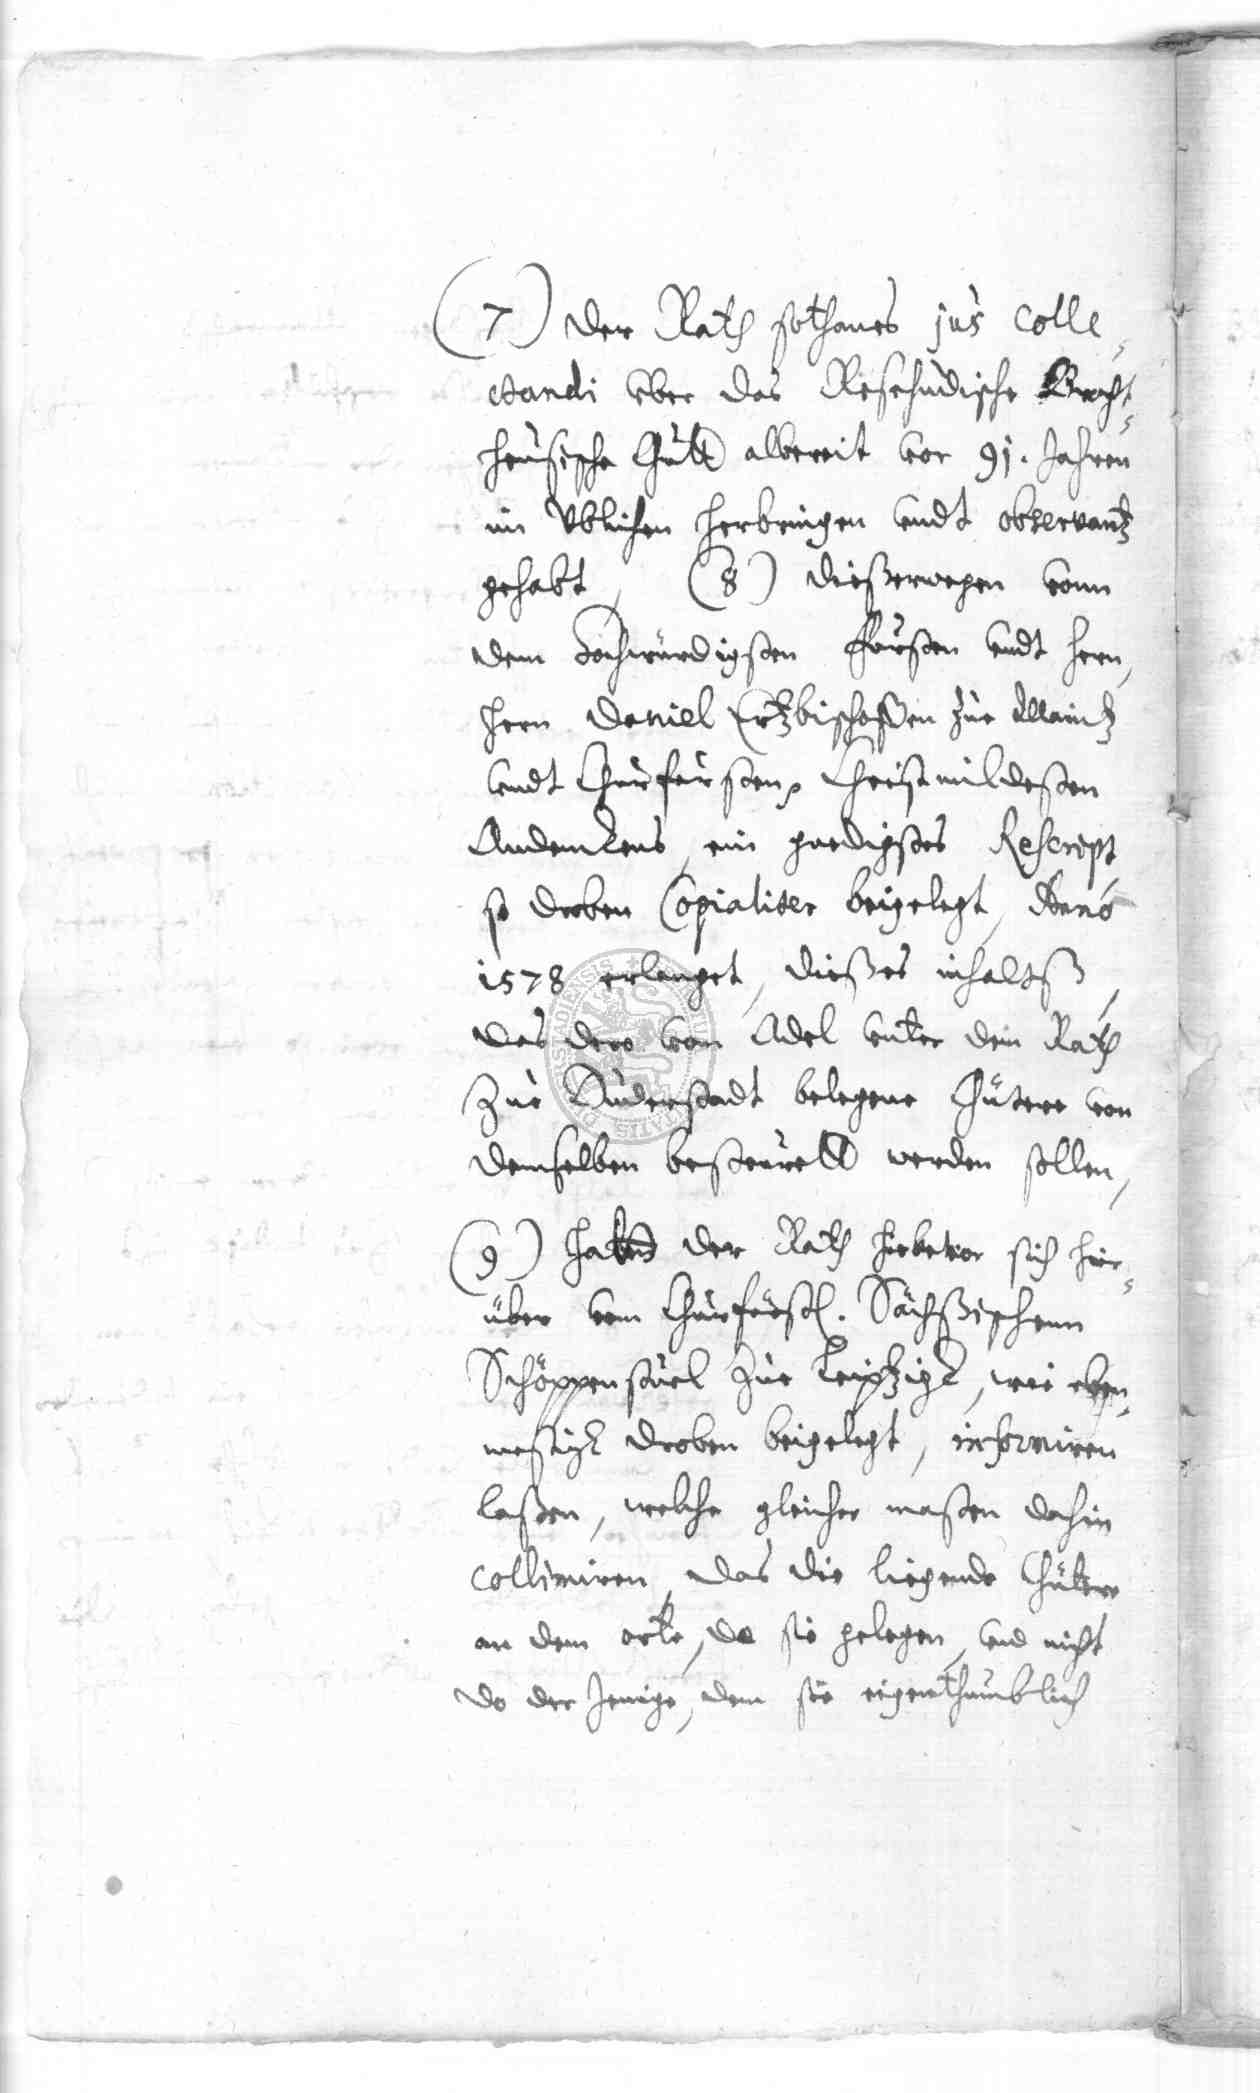 (7) der Rath sothanes jus Colle-
ctandi vber das Reschüdische
heusische Gutt albereit vor 91. Jahren
im Vblichen herbringen undt observantz
gehabt, (8) dießerwegen vonn
dem Hochwürdigsten Fürsten undt Hern,
Hern Daniel Ertzbischoffen zue Maintz
undt Churfürsten, Christmildesten
Andenkens, ein gnedigstes Rescript,
so droben Copialiter beigelegt, Anno
1578 erlanget, dießes inhaltß,
das dero von Adel unter dem Rath
zue Duderstadt belegene Gütere von
demselben besteurett werden sollen,
(9) der Rath hiebevor sich hier-
über vom Churfürstl. Sächßischenn
Schöppenstuel zue Leiptzigk, wie eben-
meßigk droben beigelegt, informiren
laßen, welche gleicher maßen dahin
collimiren, das die liegende Gütere
an dem orte, da sie gelegen, und nicht
do der Jenige, dem sie eigenthumblich